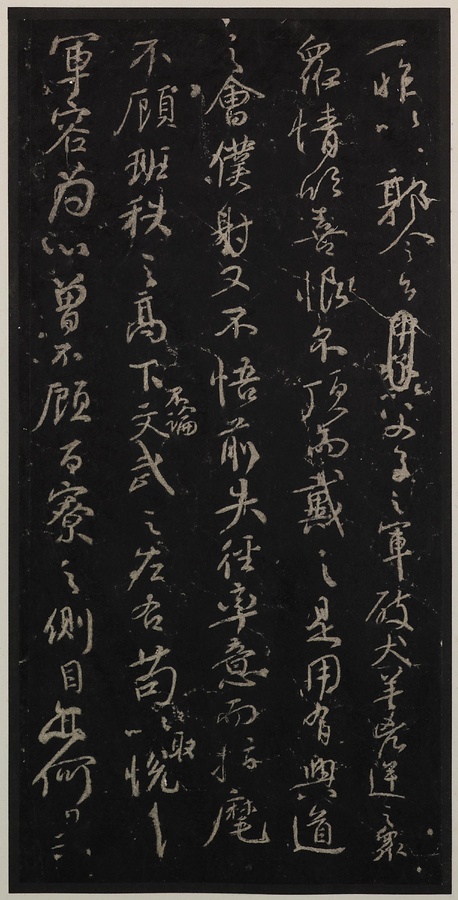 一昨以郭令公以父子之軍破犬羊凶逆之衆
衆情欣喜恨不頂而戴之是用有興道
之會僕射又不悟前失徑率意而指麾
不顧班秩之高下不論文武之左右苟以取悅
軍容為心曾不顧百寮之側目亦何異